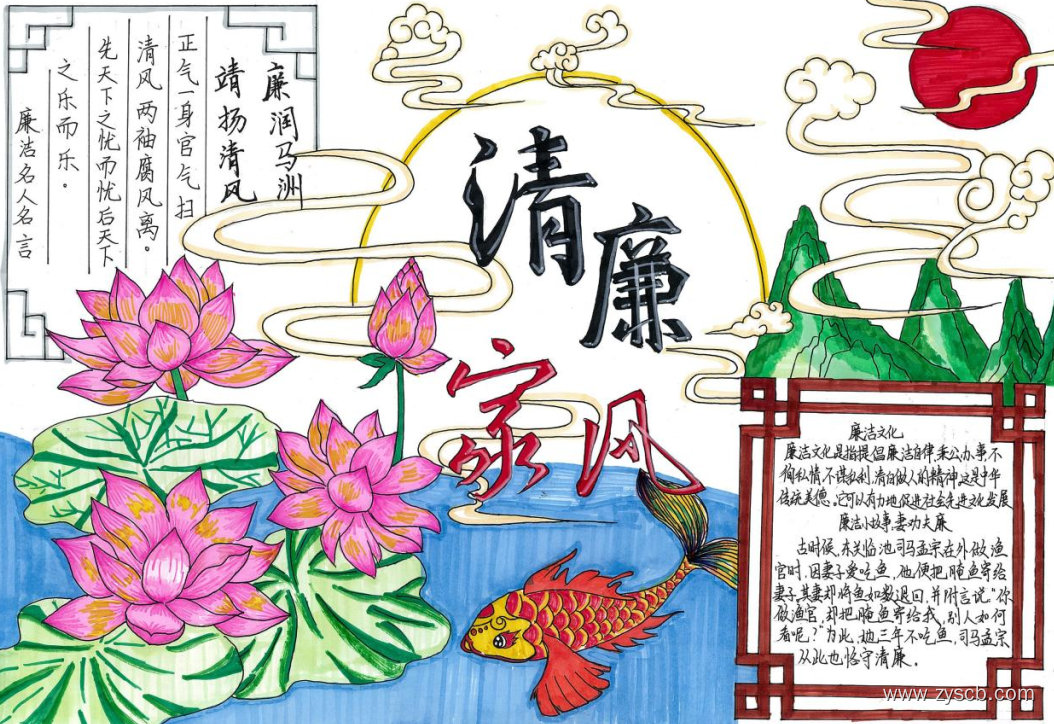 廉润马洲
靖扬清风
正气一身官气扫
清风两袖腐风离。
先天下之忧而忧后天下
之乐而乐。
廉洁名人名言
清廉
家风
廉洁文化
廉洁文化是指提倡廉洁自律,秉公办事不
徇私情不谋私利.清白做人的精神.这是中华
传统美德。它可以有力地促进社会先进文化发展
廉洁小故事:妻劝夫廉
古时候,东关临池司马孟宗在外做渔
官时,因妻子爱吃鱼,他便把腌鱼寄给
妻子,其妻却将鱼如数退回,并附言说:“你
做渔官,却把腌鱼寄给我,别人如何
看呢?”为此,她三年不吃鱼,司马孟宗
从此也恪守清廉.
www.zyscb.com